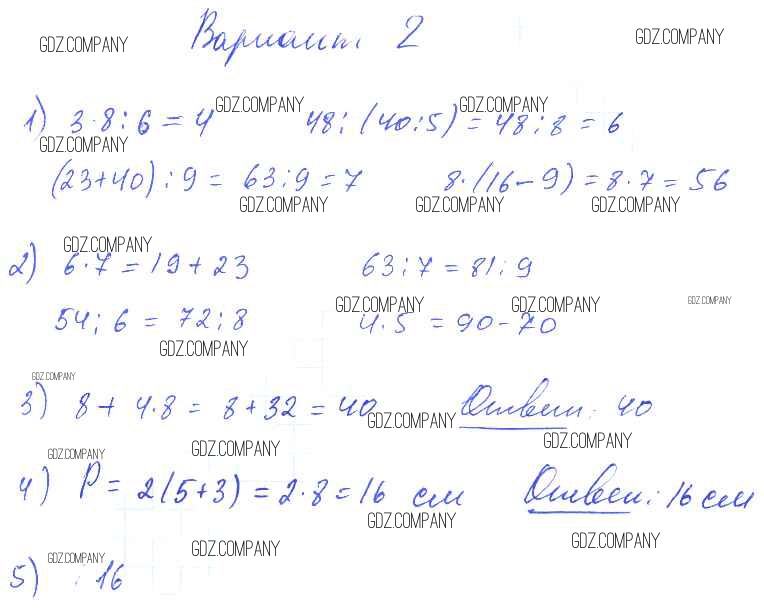 GDZ.COMPANY Вариант 2 GDZ.COMPANY
1) 3·8:6=4 GDZ.COMPANY 48:(40:5)=48:8=6 GDZ.COMPANY
GDZ.COMPANY
(23+40):9= 63:9=7 8·(16-9)=8·7=56
GDZ.COMPANY GDZ.COMPANY GDZ.COMPANY
GDZ.COMPANY
2) 6·7=19+23 63:7=81:9
GDZ.COMPANY GDZ.COMPANY GDZ.COMPANY
54:6 = 72:8 4·5 = 90-70
GDZ.COMPANY
GDZ.COMPANY
3) 8+4·8= 8+32=40 Ответ: 40
GDZ.COMPANY
GDZ.COMPANY GDZ.COMPANY GDZ.COMPANY
4) P= 2(5+3)=2·8=16 см Ответ: 16 см
GDZ.COMPANY
GDZ.COMPANY GDZ.COMPANY GDZ.COMPANY
5) : 16